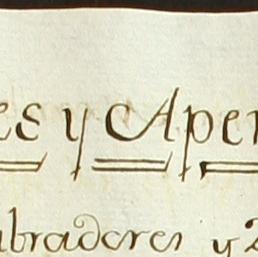 es y Aper
bradores y 2